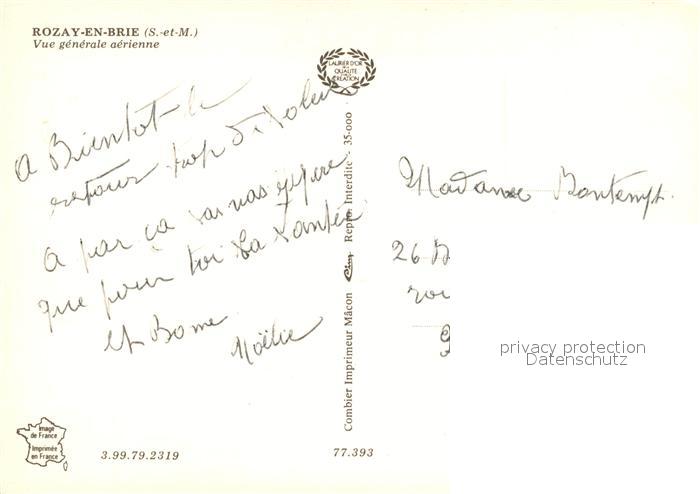 ROZAY-EN-BRIE (S.-et-M.)
Vue générale aérienne
LAURIER D'OR
DE LA
QUALITE
CREATION
A Bientôt le
retour trop de soleil
A par ça
que pour toi La Santée
est Bonne
Noëlie
Combier Imprimeur Mâcon Cim Repro Interdite 35-000
Madame Bontemps.
26
privacy protection
Datenschutz
Image
de France
Imprimée
en France
3.99.79.2319
77.393